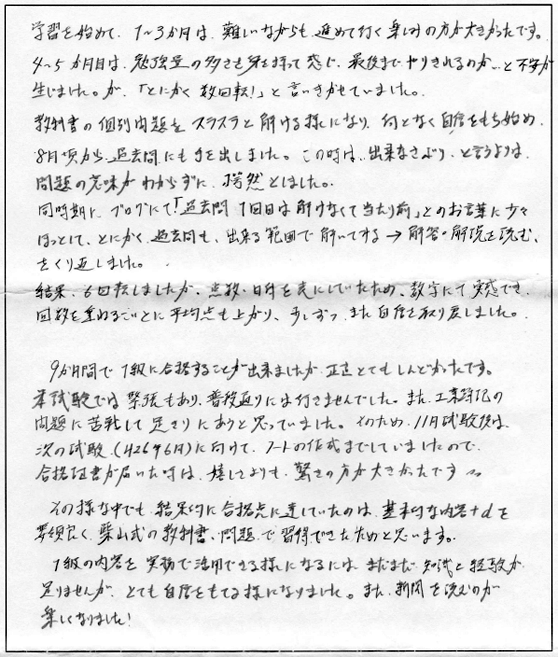 学習を始めて、1~3か月は、難しいながらも、進めて行く楽しみの方が大きかったです。
4~5か月目は、勉強量の多さも身を持って感じ、最後までやりきれるのか…と不安が
生じました。が、「とにかく数回転!」と言いきかせていました。
教科書の個別問題をスラスラと解ける様になり、何となく自信をもち始め、
8月頃から、過去問にも手を出しました。この時は、出来なさぶり、と言うよりは、
問題の意味がわからずに、愕然としました。
同時期に、ブログにて「過去問1回目は解けなくて当たり前」とのお言葉に少々
ほっとして、とにかく、過去問も、出来る範囲で解いてする→解答・解説を読む、
をくり返しました。
結果、6回転しましたが、点数・日時を表にしていたため、数字にて実感でき、
回数を重ねるごとに平均点も上がり、少しずつ、また自信を取り戻しました。
9か月間で1級に合格することが出来ましたが、正直とてもしんどかったです。
本試験では緊張もあり、普段通りには行きませんでした。また、工業簿記の
問題に苦戦して、足きりにあうと思っていました。そのため、11月試験後は、
次の試験、(H26年6月)に向けて、ノートの作成までしていましたので、
合格証書が届いた時は、嬉しさよりも、驚きの方が大きかったです
その様な中でも、結果的に合格点に達していたのは、基本的な内容+αを
要領良く、柴山式の教科書、問題で習得できたためと思います。
1級の内容を実務で活用できる様になるには、まだまだ知識と経験が
足りませんが、とても自信をもてる様になりました。また、新聞を読むのが
楽しくなりました!